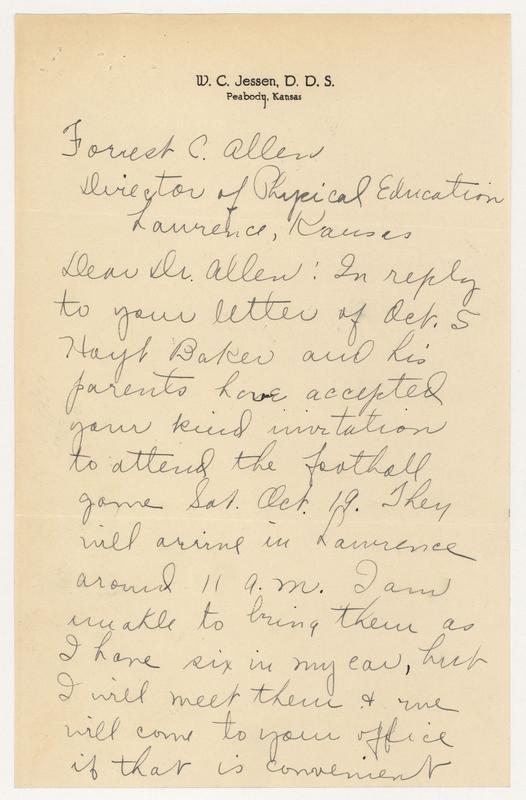 W. C. Jessen, D. D. S.
Peabody, Kansas
Forrest C. Allen
Director of Physical Education
Lawrence, Kansas
Dear Dr. Allen: In reply
to your letter of Oct. 5
Hoyt Baker and his
parents have accepted
your kind invitation
to attend the football
game Sat. Oct. 19. They
will arrive in Lawrence
around 11 a.m. I am
unable to bring them as
I have six in my car, but
I will meet them & we
will come to your office
if that is convenient